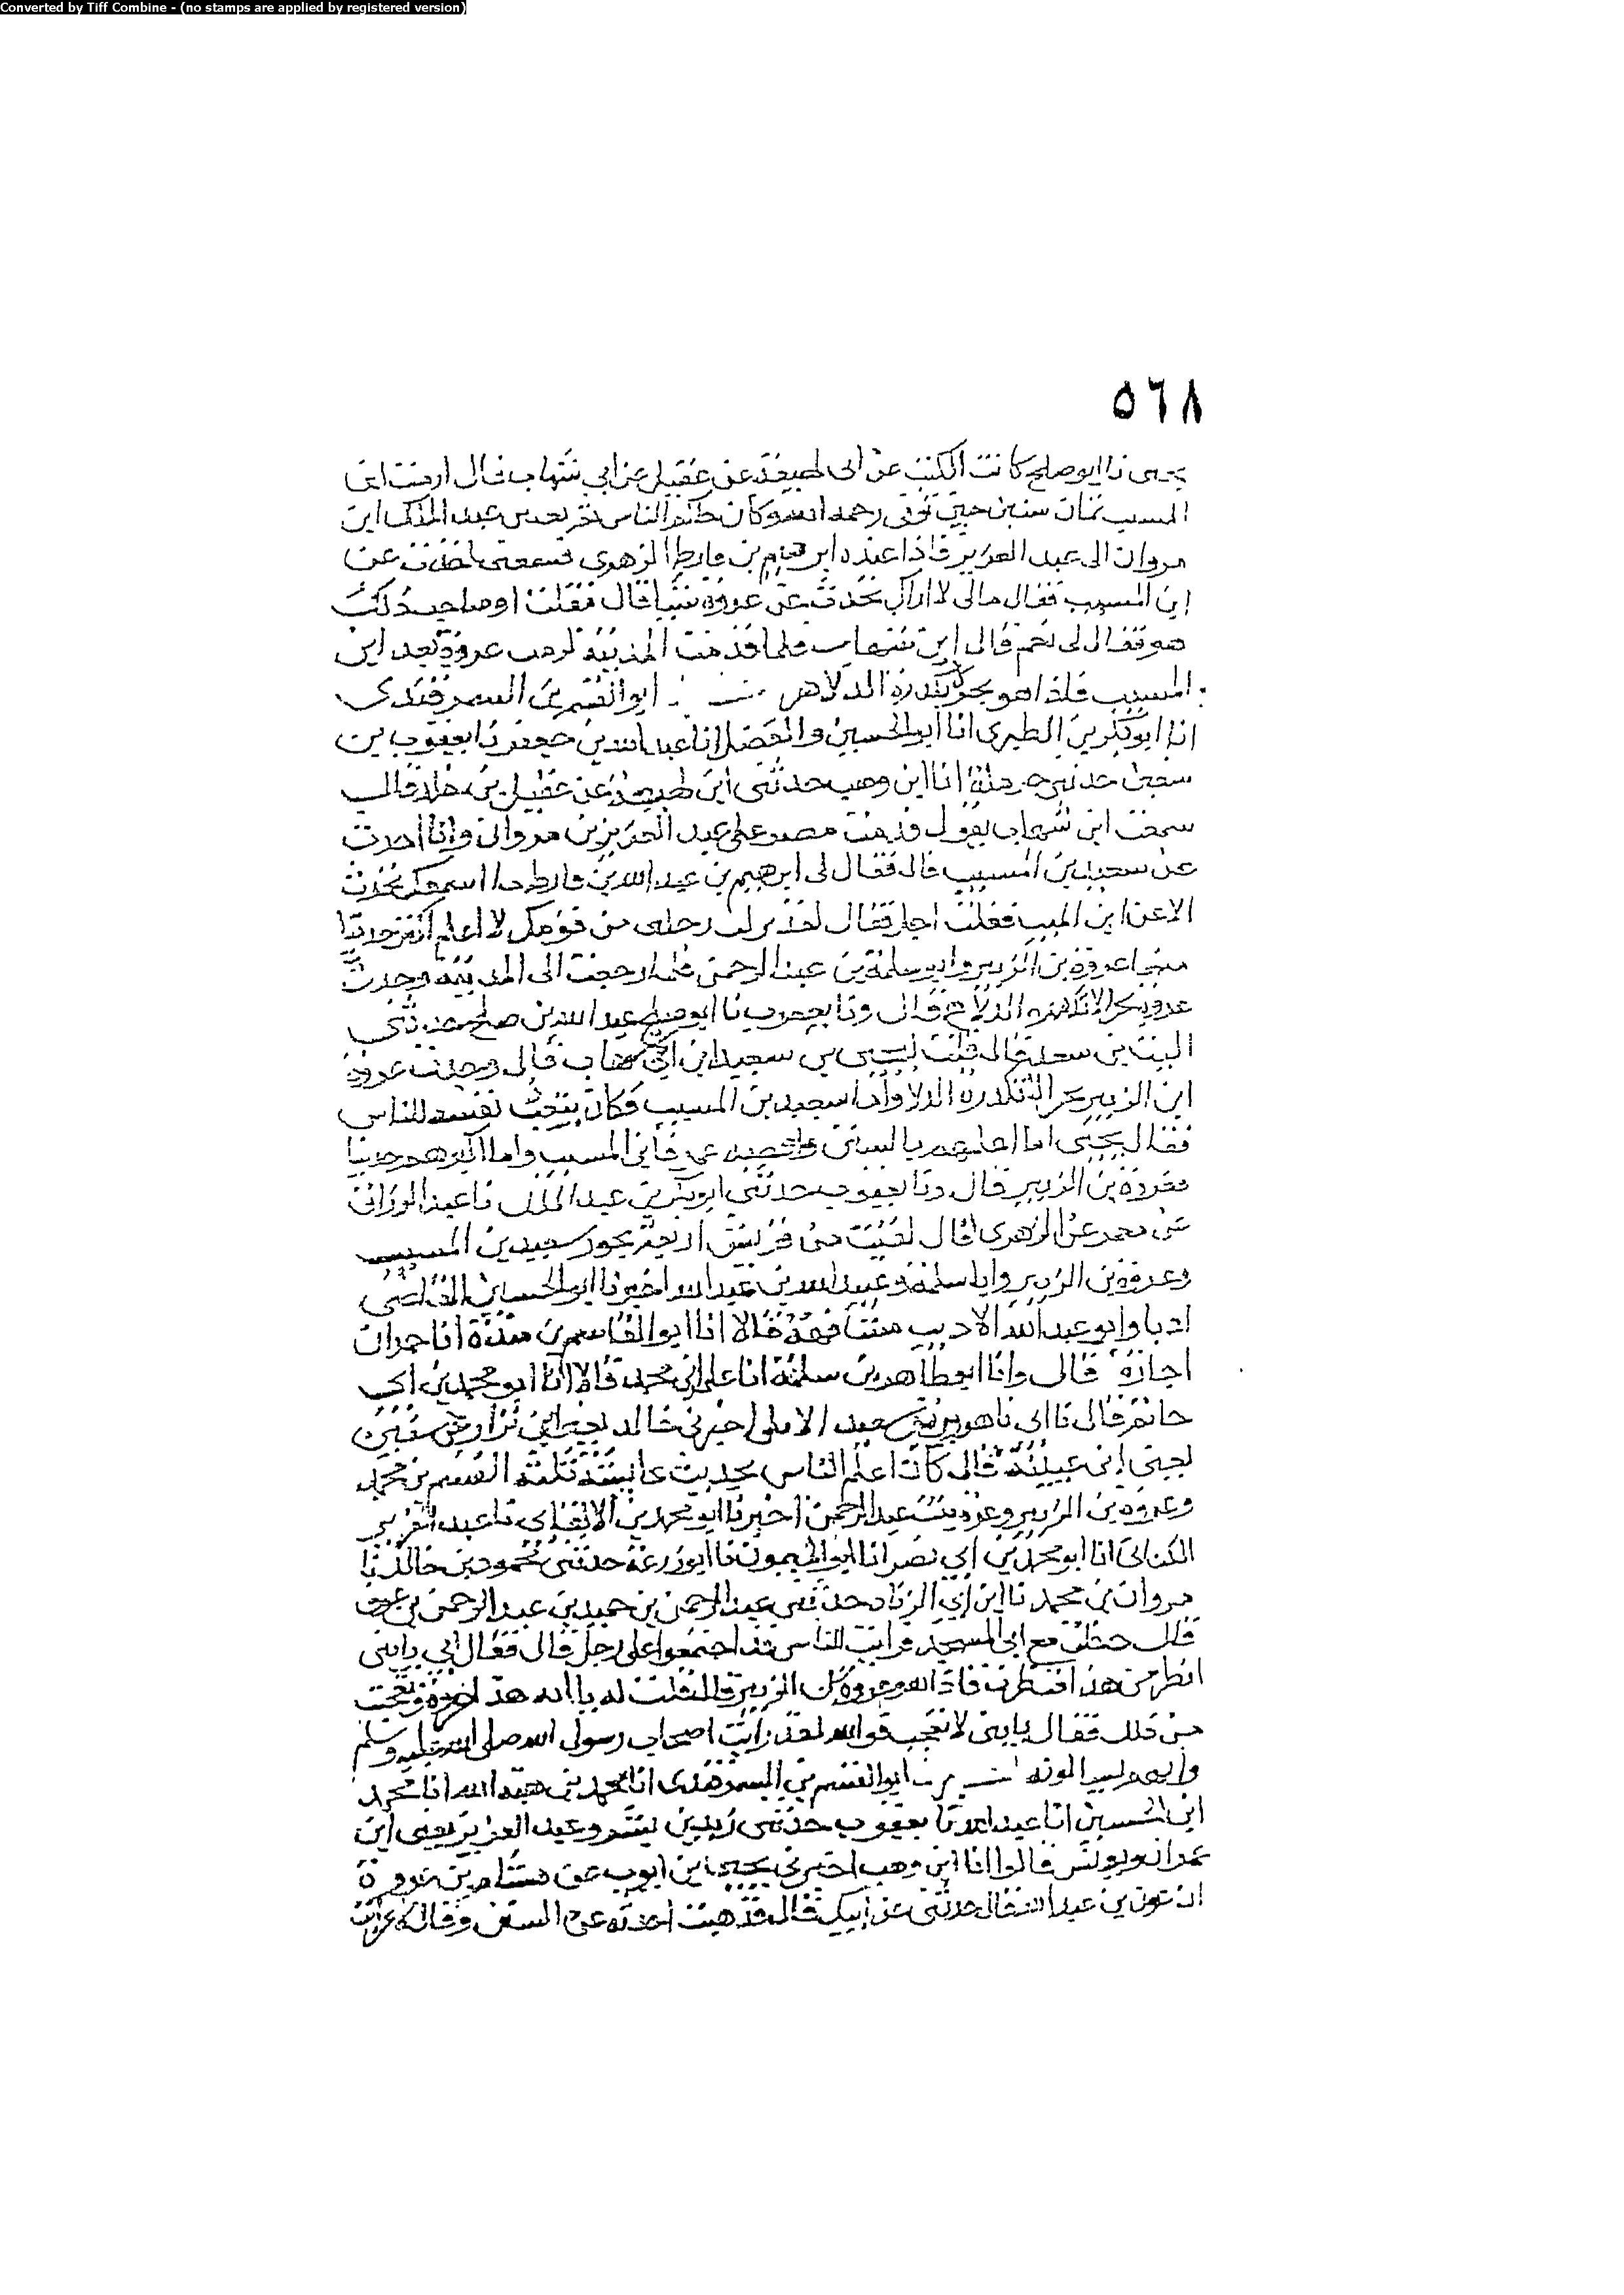 Converted by Tiff Combine - (no stamps are applied by registered version)
٥٦٨
يحيى نا ابو صالح كاتب الليث عن ابن لهيعة عن عقيل عن ابن شهاب قال لزمت ابن
المسيب ثمان سنين حتى توفى رحمه الله وكان عبد الملك ابن
مروان الى عبد العزيز فاذا عنده ابرهيم بن قارظ الزهرى فسمعنى احدث عن
ابن المسيب فقال مالى لا اراك تحدث عن عروة شيا قال فقلت اوصاحب ذلك
هو فقال لى نعم قال ابن شهاب فلما قدمت المدينة لزمت عروة بعد ابن
المسيب فاذا هو بحر لا تكدره الدلاء ابو القسم بن السمرقندى
انا ابو بكر بن الطبرى انا ابو الحسين بن الفضل انا عبد الله بن جعفر نا يعقوب بن
سفين حدثنى حرملة انا ابن وهب حدثنى ابن لهيعة عن عقيل بن خلد قال
سمعت ابن شهاب يقول قدمت مصر على عبد العزيز بن مروان وانا احدث
عن سعيد بن المسيب قال فقال لى ابرهيم بن عبد الله بن قارظ ما اسمعك تحدث
الا عن ابن المسيب فقلت اجل فقال لقد تركت رجلين من قومك لا اعلم اكثر حديثا
منهما عروة بن الزبير وابو سلمة بن عبد الرحمن فلما رجعت الى المدينة وجدت
عروة بحر لا تكدره الدلاء قال ونا يعقوب نا ابو صالح عبد الله بن صالح حدثنى
الليث بن سعد قال قلت ليحيى بن سعيد ابن شهاب قال وجدت عروة
ابن الزبير بحر لا تكدره الدلا واما سعيد بن المسيب فكان نفسه للناس
فقال يحيى اما اعلمهم بالسنن فابن المسيب واما اكثرهم حديثا
فعروة بن الزبير قال ونا يعقوب حدثنى ابو بكر بن عبد الملك نا عبد الرزاق
عن معمر عن الزهرى قال لقيت من قريش اربعة بحور سعيد بن المسيب
وعروة بن الزبير وابا سلمة وعبيد الله بن عبد الله اخبرنا ابو الحسين القاضى
اذنا وابو عبد الله الاديب مشافهة قالا انا ابو القاسم بن مندة انا حمد
اجازة قال وانا ابو طاهر بن سلمة انا على بن محمد قالا انا ابو محمد بن ابى
حاتم قال نا ابى نا هرون بن سعيد الايلى اخبرنى خالد يعنى ابن نزار عن سفين
يعنى ابن عيينة قال كان اعلم الناس بحديث عايشة ثلثة القسم بن محمد
وعروة بن الزبير وعمرة بنت عبد الرحمن اخبرنا ابو محمد بن الاكفانى نا عبد العزيز
الكتانى انا ابو محمد بن ابى نصر انا ابو الميمون نا ابو زرعة حدثنى محمود بن خالد نا
مروان بن محمد نا ابن ابى الزناد حدثنى عبد الرحمن بن حميد بن عبد الرحمن بن عوف
قال دخلت مع ابى المسجد فرايت الناس قد اجتمعوا على رجل قال فقال ابى يا بنى
انظر من هذا فنظرت فاذا هو عروة بن الزبير قال فقلت له يا ابه هذا عروة وتعجبت
من ذلك فقال يا بنى لا تعجب فوالله لقد رايت اصحاب رسول الله صلى الله عليه وسلم
وانهم ليسالونه ابو القسم بن السمرقندى انا محمد بن هبة الله انا محمد
ابن الحسين انا عبد الله نا يعقوب حدثنى زيد بن بشر وعبد العزيز يعنى ابن
عمران ويونس قالوا انا ابن وهب اخبرنى يحيى ابن ايوب عن هشام بن عروة
ان عون بن عبد الله قال حدثنى عن ابيك قال فذهبت احدثه عن السنن وقال